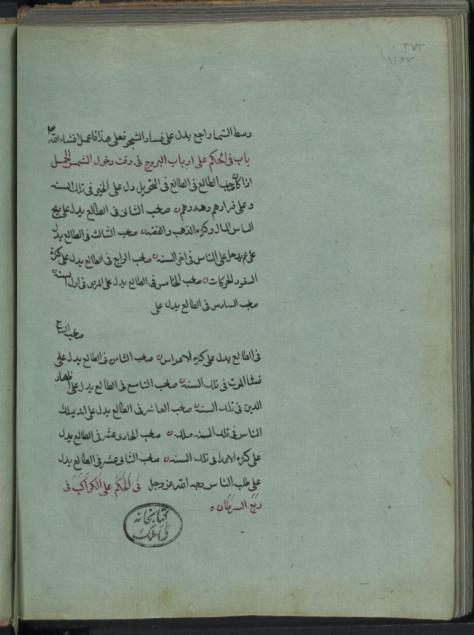 ٣٧٢
وسط السما راجع يدل على فساد الشجر فعلى هذا فاعمل انشاء الله
باب فى الحكم على ارباب البروج فى وقت دخول الشمس الحمل
اذا كان صاحب الطالع فى الطالع فى التحويل دل على الخير فى تلك السنه
وعلى قرارهم وهدوهم صاحب الثانى فى الطالع يدل على
الناس المال وكثرة الذهب والفضه صاحب الثالث فى الطالع يدل
على على الناس فى السنه صاحب الرابع فى الطالع يدل على كثرة
السفر والحركات صاحب الخامس فى الطالع يدل على فى اول السنه
صاحب السادس فى الطالع يدل على
صاحب السابع
فى الطالع يدل على كثرة الامراض صاحب الثامن فى الطالع يدل على
الموت فى تلك السنه صاحب التاسع فى الطالع يدل على اظهار
الدين فى تلك السنه صاحب العاشر فى الطالع يدل على
الناس فى تلك السنه صاحب الحادى عشر فى الطالع يدل
على كثرة فى تلك السنه صاحب الثانى عشر فى الطالع يدل
على طلب الناس وجه الله عز وجل فى الحكم على الكواكب فى
ربع السرطان
كتابخانه
ملك